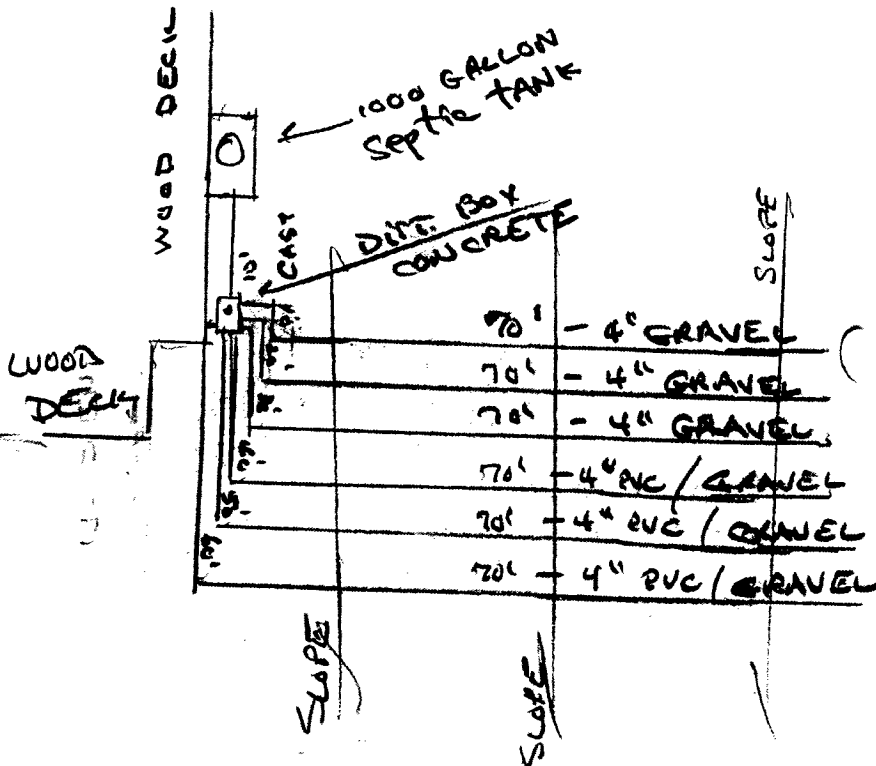 WOOD DECK
1000 GALLON
Septic TANK
DIST. BOX
CONCRETE
10'
CAST
SLOPE
WOOD
DECK
70' - 4" GRAVEL
70' - 4" GRAVEL
70' - 4" GRAVEL
70' - 4" PVC / GRAVEL
70' - 4" PVC / GRAVEL
70' - 4" PVC / GRAVEL
60'
SLOPE
SLOPE